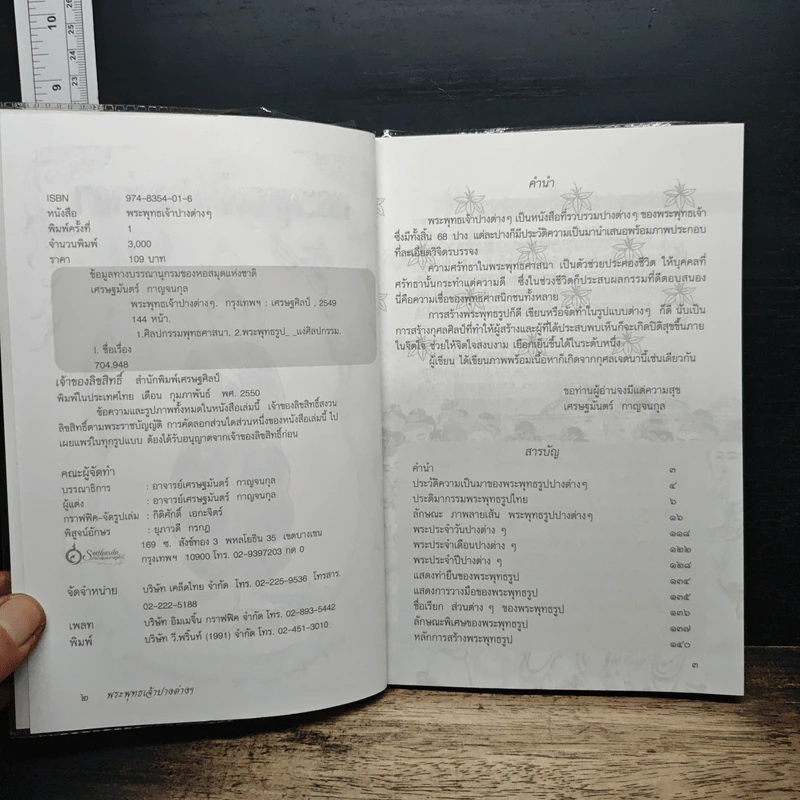 10
9
26
25
24
23
ISBN 974-8354-01-6
หนังสือ พระพุทธเจ้าปางต่างๆ
พิมพ์ครั้งที่ 1
จำนวนพิมพ์ 3,000
ราคา 109 บาท
ข้อมูลทางบรรณานุกรมของหอสมุดแห่งชาติ
เศรษฐมันตร์ กาญจนกุล
พระพุทธเจ้าปางต่างๆ. กรุงเทพฯ : เศรษฐศิลป์ , 2549
144 หน้า.
1.ศิลปกรรมพุทธศาสนา. 2.พระพุทธรูป_ _แง่ศิลปกรรม.
I. ชื่อเรื่อง
704.948
เจ้าของลิขสิทธิ์ สำนักพิมพ์เศรษฐศิลป์
พิมพ์ในประเทศไทย เดือน กุมภาพันธ์ พศ. 2550
ข้อความและรูปภาพทั้งหมดในหนังสือเล่มนี้ เจ้าของลิขสิทธิ์สงวน
ลิขสิทธิ์ตามพระราชบัญญัติ การคัดลอกส่วนใดส่วนหนึ่งของหนังสือเล่มนี้ ไป
เผยแพร่ในทุกรูปแบบ ต้องได้รับอนุญาตจากเจ้าของลิขสิทธิ์ก่อน
คณะผู้จัดทำ
บรรณาธิการ : อาจารย์เศรษฐมันตร์ กาญจนกุล
ผู้แต่ง : อาจารย์เศรษฐมันตร์ กาญจนกุล
กราฟฟิค-จัดรูปเล่ม : กิติศักดิ์ เอกะจิตร์
พิสูจน์อักษร : ยุภาวดี กรกฏ
169 ซ. สังข์ทอง 3 พหลโยธิน 35 เขตบางเขน
กรุงเทพฯ 10900 โทร. 02-9397203 กด 0
จัดจำหน่าย บริษัท เคล็ดไทย จำกัด โทร. 02-225-9536 โทรสาร.
02-222-5188
เพลท บริษัท อิมเมจิ้น กราฟฟิค จำกัด โทร. 02-893-5442
พิมพ์ บริษัท วี.พริ้นท์ (1991) จำกัด โทร. 02-451-3010
๒ พระพุทธเจ้าปางต่างๆ
คำนำ
พระพุทธเจ้าปางต่างๆ เป็นหนังสือที่รวบรวมปางต่างๆ ของพระพุทธเจ้า
ซึ่งมีทั้งสิ้น 68 ปาง แต่ละปางก็มีประวัติความเป็นมานำเสนอพร้อมภาพประกอบ
ที่ละเอียดวิจิตรบรรจง
ความศรัทธาในพระพุทธศาสนา เป็นตัวช่วยประคองชีวิต ให้บุคคลที่
ศรัทธานั้นกระทำแต่ความดี ซึ่งในช่วงชีวิตก็ประสบผลกรรมที่ดีตอบสนอง
นี่คือความเชื่อของพุทธศาสนิกชนทั้งหลาย
การสร้างพระพุทธรูปก็ดี เขียนหรือจัดทำในรูปแบบต่างๆ ก็ดี นับเป็น
การสร้างกุศลศิลป์ที่ทำให้ผู้สร้างและผู้ที่ได้ประสบพบเห็นก็จะเกิดปิติสุขขึ้นภาย
ในจิตใจ ช่วยให้จิตใจสงบงาม เยือกเย็นขึ้นได้ในระดับหนึ่ง
ผู้เขียน ได้เขียนภาพพร้อมเนื้อหาก็เกิดจากกุศลเจตนานี้เช่นเดียวกัน
ขอท่านผู้อ่านจงมีแต่ความสุข
เศรษฐมันตร์ กาญจนกุล
สารบัญ
คำนำ ๓
ประวัติความเป็นมาของพระพุทธรูปปางต่างๆ ๔
ประติมากรรมพระพุทธรูปไทย ๖
ลักษณะ ภาพลายเส้น พระพุทธรูปปางต่างๆ ๑๖
พระประจำวันปางต่าง ๆ ๑๑๘
พระประจำเดือนปางต่าง ๆ ๑๒๒
พระประจำปีปางต่าง ๆ ๑๒๘
แสดงท่ายืนของพระพุทธรูป ๑๓๔
แสดงการวางมือของพระพุทธรูป ๑๓๕
ชื่อเรียก ส่วนต่าง ๆ ของพระพุทธรูป ๑๓๖
ลักษณะพิเศษของพระพุทธรูป ๑๓๗
หลักการสร้างพระพุทธรูป ๑๔๐
๓